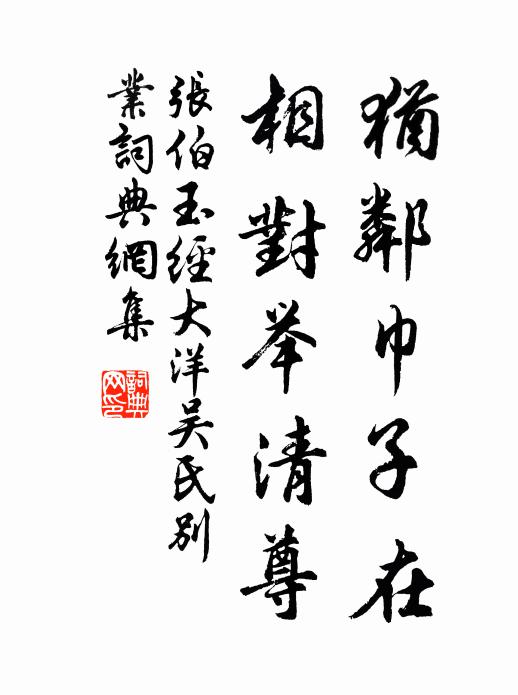 猶鄰巾子在
相對举清尊
張伯玉經大洋吴氏别
業詞典網集
詞典
网印